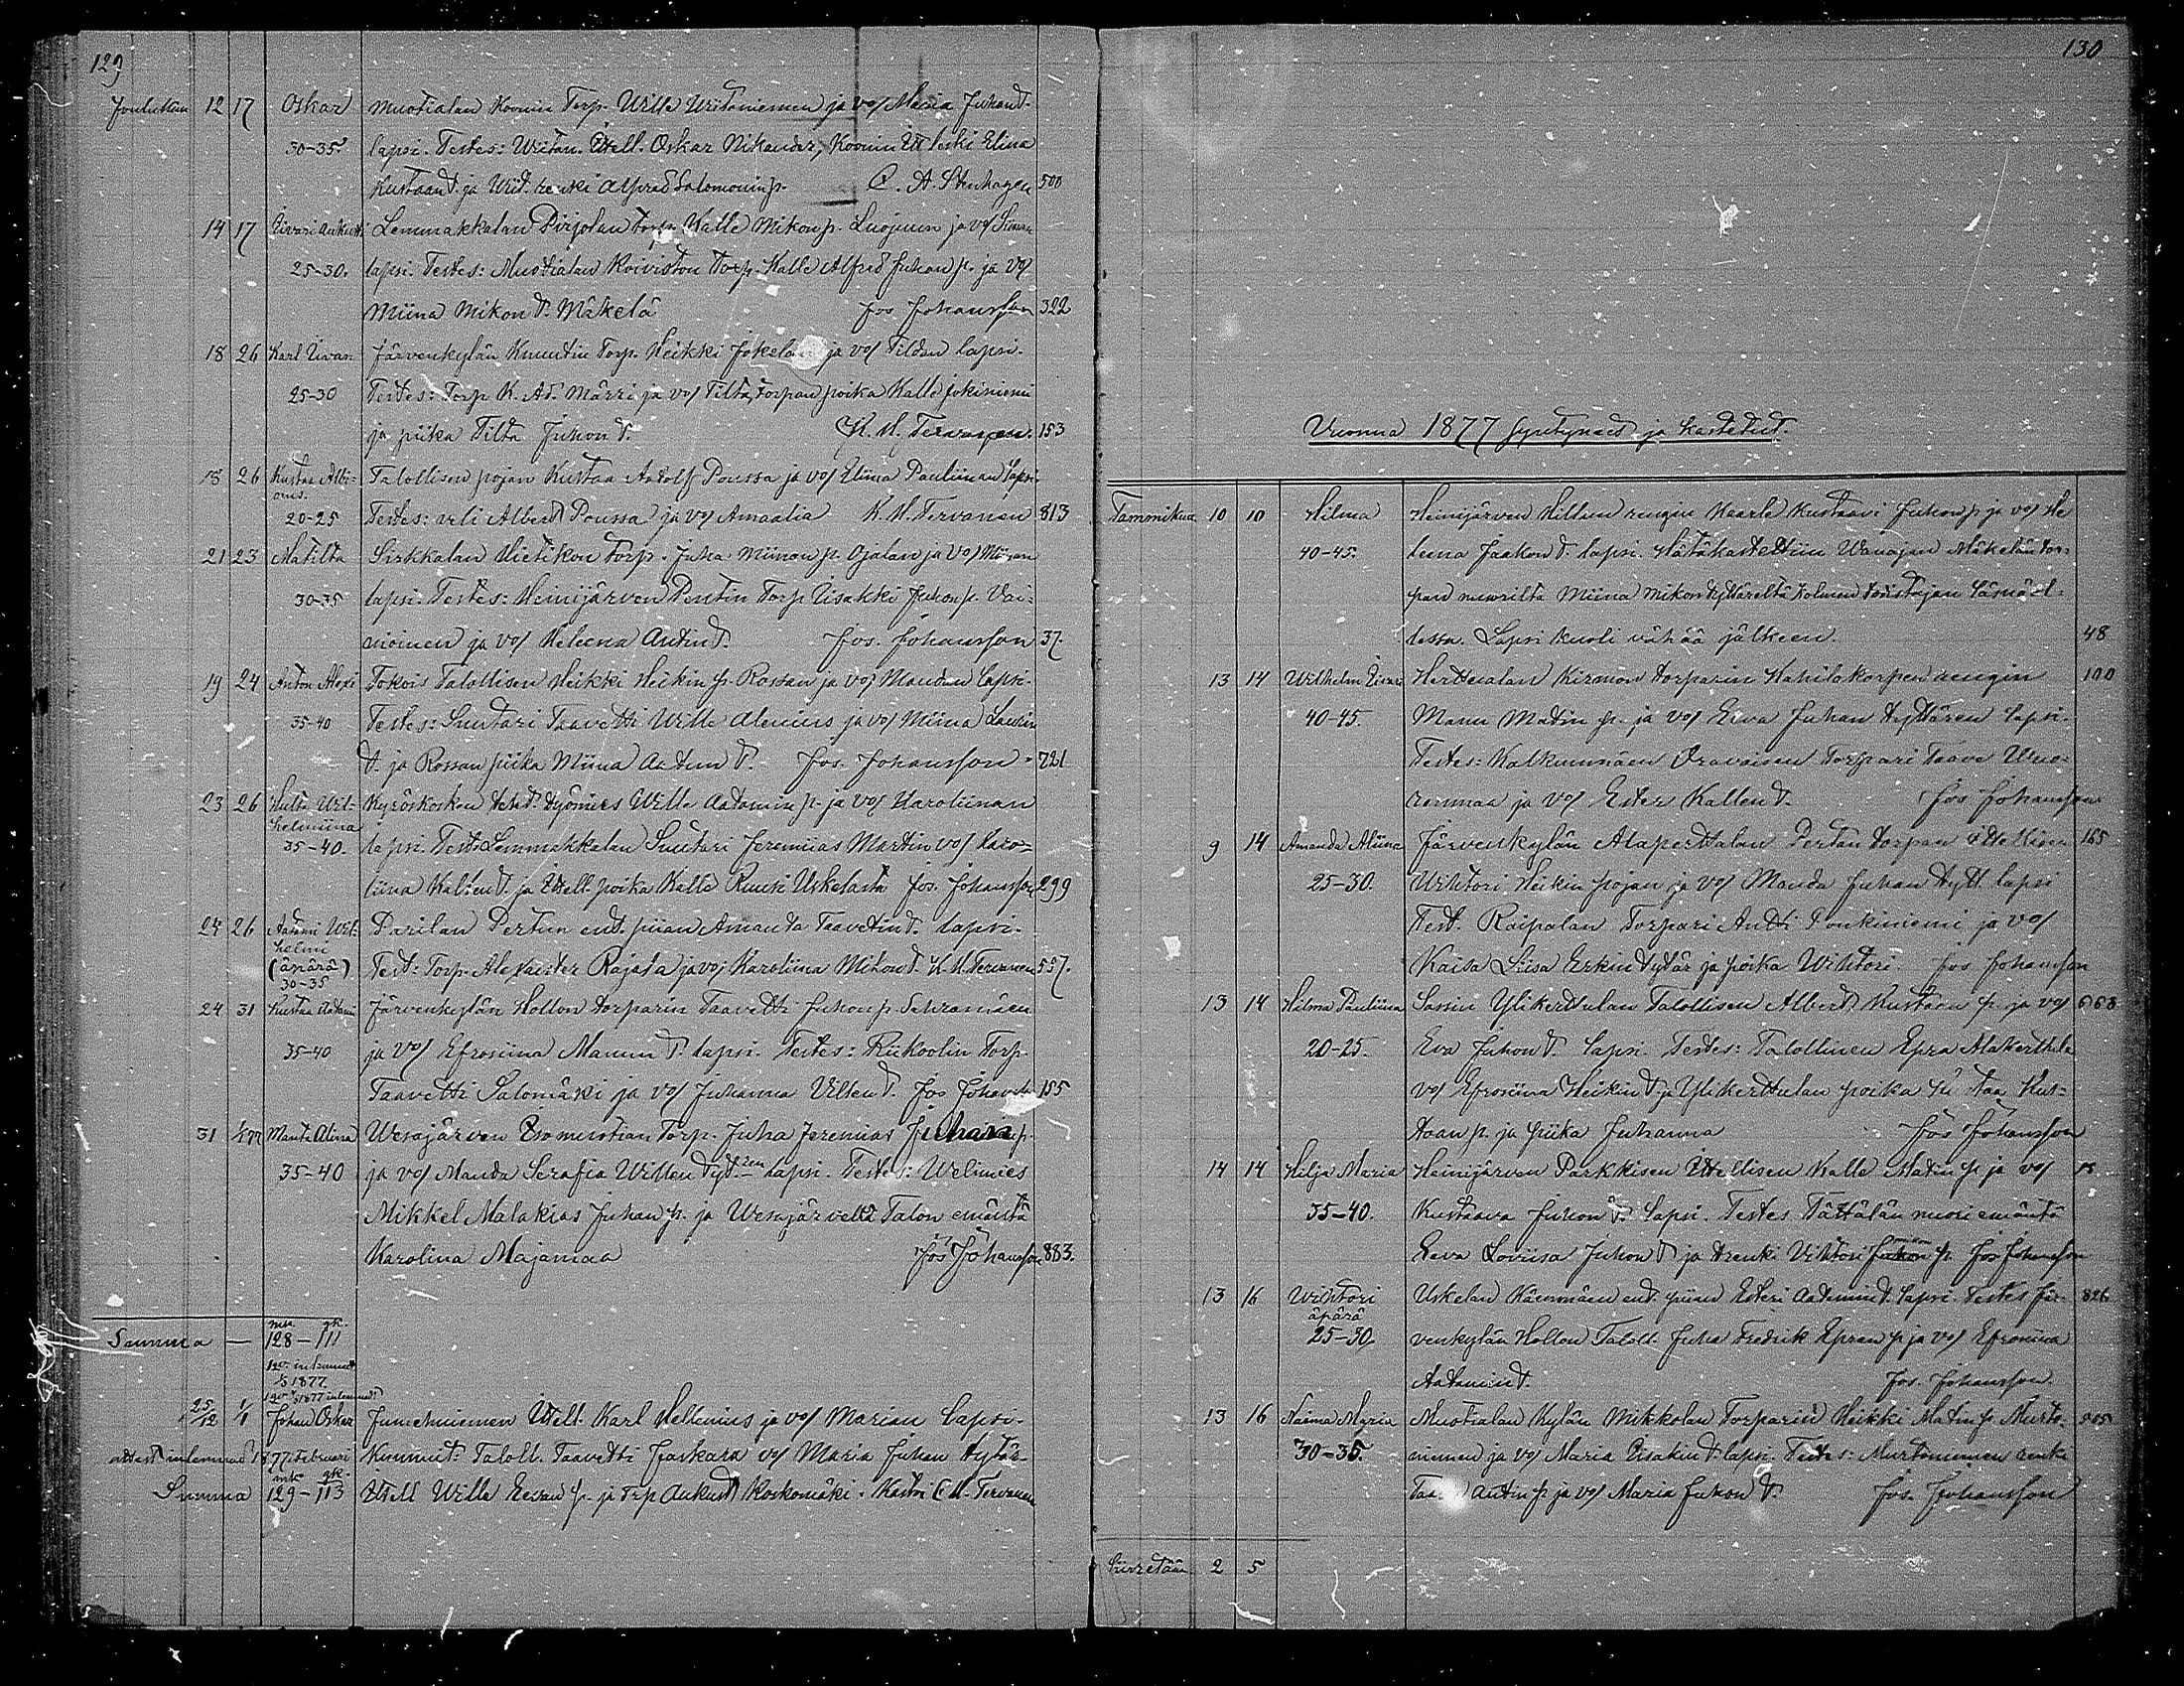 129
Joulukuu 12 17 Oskar Mustialan Koonin Torp. Wille Uritaniemen ja vo/ Maria Juhan d.
30-35. lapsi. Testes: Itsell. Oskar Nikander, Koonin leski Elina
Kustaan d. ja renki Alfred Salomonin p. C. A. Stenhagen 500
14 17 Eivari Aukusti Lemmakkalan Pirjolan torp. Kalle Mikon p. Luojuen ja vo/
25-30. lapsi. Testes: Mustialan Koiviston Torp. Kalle Alfred Juhan p. ja vo/
Miina Mikon d. Mäkelä Jos. Johansson 322
18 26 Karl Iivari Järvenkylän Knuutin Torp. Heikki Jokela ja vo/ Tildan lapsi.
25-30 Testes: Torp. K. Ad. Märri ja vo/ Tilta, torpan poika Kalle Jokiniemi
ja piika Tilta Juhon d. K. H. Tervanen. 153
18 26 Kustaa Albi=
anus. Talollisen pojan Kustaa Aadolf Poussa ja vo/ Eliina Pauliinan lapsi.
20-25 Testes: veli Albert Poussa ja vo/ Amaalia K. H. Tervanen 813
21 23 Matilta Sirkkalan Hietikon torp. Juha Miinan p. Ojalan ja vo/ Miinan
30-35 lapsi. Testes: Heinijärven Pentin Torp. Iisakki Juhon p. Vai-
nioinen ja vo/ Heleena Antin d. Jos. Johansson 37.
19 24 Anton Aleksi Talollisen Heikki Heikin p. Rossan ja vo/ Mandan lapsi.
35-40 Testes: Suutari Taavetti Wille Alenius ja vo/ Miina Laurin
d. ja Rossan piika Miina Aatun d. Jos. Johansson 721
23 26 Hulta Wil-
helmiina Kyröskosken työmies Wille Aatamin p. ja vo/ Karoliinan
35-40. lapsi. Test. Lemmakkalan Suutari Jeremias Martin vo/ Karo-
liina Kallen d. ja Itsell. poika Kalle Ruuti Uskelasta Jos. Johansson 299
24 26 Aatami Wil-
helmi Parilan Pertun end. piian Amanta Taavetin d. lapsi.
(äpärä) Test: Torp. Aleksanter Rajala ja vo/ Karoliina Mikon d. K. H. Tervanen 557.
30-35
24 31 Kustaa Aatami Järvenkylän Hollon torparin Taavetti Juhon p. Sahramäen
35-40 ja vo/ Efrosiina Manun d. lapsi. Testes: Riikoolin Torp.
Taavetti Salomäki ja vo/ Juhanna Villen d. Jos Johansson 155
31 1/1 77 Manta Alina Wesajärven Isomustian Torp. Juha Jeremias Juhan p.
35-40 ja vo/ Manda Serafia Willen tyttären lapsi. Testes: Welimies
Mikkel Malakias Juhan p. ja Wesajärveltä Talon emäntä
Karolina Majamaa Jos Johansson 883.
mk. gk.
Summa — 128 — 111
1/3 1877.
25/12 1/1 Johan Oskar Itsell. Karl Hellenius ja vo/ Marian lapsi.
1877 Februari Kummit: Taloll. Taavetti Jaskara vo/ Maria Juhan tytär
mk gk.
Summa 129-113 Itsell Wille Eevan p. ja Trp Aukusti Koskomäki. Kastoi K. H. Tervanen
130
Vuonna 1877 syntyneet ja kastetut.
Tammikuu 10 10 Hilma Heinijärven Hillun rengin Kaarle Kustaavi Juhon p. ja vo/ He
40-45. leena Jaakon d. lapsi. Hätäkastettiin Wanajan Mäkelän tor-
pan muorilta Miina Mikon tyttäreltä kolmen todistajan läsnäol-
lessa. Lapsi kuoli vähää jälkeen. 48
13 14 Wilhelm Eivari Herttualan Kirmon torparin Kahilakorpen rengin 100
40-45. Manu Matin p. ja vo/ Eeva Juhan tyttären lapsi.
Testes: Kalkunmäen Oravaisen Torpari Taave Wuo-
renmaa ja vo/ Ester Kallen d. Jos Johansson
9 14 Amanda Aliina Järvenkylän Alaperttalan Pertun torpan itsellisen 165
25-30. Wihtori Heikin pojan ja vo/ Manda Juhan tytt. lapsi
Test. Raipalan Torpari Antti Ponkiniemi ja vo/
Kaisa Liisa Erkin tytär ja poika Wihtori. Jos Johansson
13 14 Hilma Pauliina Sassin Ylikerttulan Talollisen Albert Kustaan p. ja vo/ 668
20-25. Eva Juhon d. lapsi. Testes: Talollinen Epra Alakerttula
vo/ Efrosiina Heikin d. ja Ylikerttulan poika Kus-
taan p. ja piika Juhanna Jos Johansson
14 14 Hilja Maria Heinijärven Parkkisen Itsellisen Kalle Matin p. ja vo/
35-40. Kustaava Juhon d. lapsi. Testes Tättälän nuori emäntä
Eeva Loviisa Juhon d. ja trenki Vihtori p. Jos Johansson
13 16 Wihtori Uskelan Känmäen end. piian Esteri Aatamin d. lapsi. Testes Jär- 826
äpärä
25-30. venkylän Hollon Taloll. Juha Fredrik Epran p. ja vo/ Efrosiina
Aatamin d. Jos. Johansson
13 16 Naima Maria Mustialan kylän Mikkolan Torparin Heikki Matin p. Murto-
30-35. niemen ja vo/ Maria Iisakin d. lapsi. Testes: Murtoniemen renki
Antin p. ja vo/ Maria Juhon d. Jos. Johansson
Siirretään 2 5